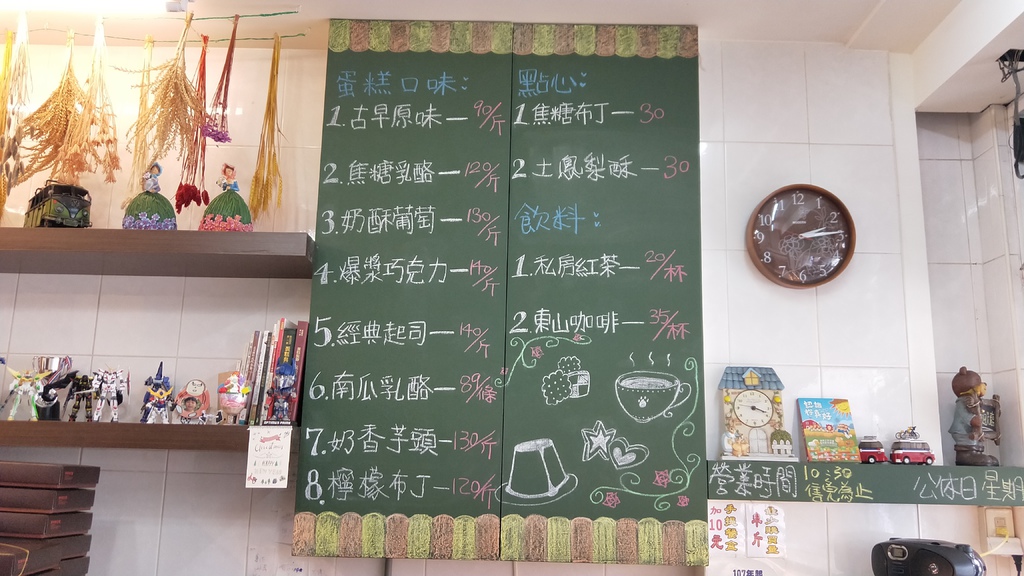 蛋糕口味:
1.古早原味—90/斤
2.焦糖乳酪—120/斤
3.奶酥葡萄—130/斤
4.爆漿巧克力—140/斤
5.經典起司—140/斤
6.南瓜乳酪—89/條
7.奶香芋頭—130/斤
8.檸檬布丁—120/斤
點心:
1.焦糖布丁—30
2.土鳳梨酥—30
飲料:
1.私房紅茶—20/杯
2.東山咖啡—35/杯
營業時間 10:30
售完為止
公休日星期
加10元
手提袋
107年